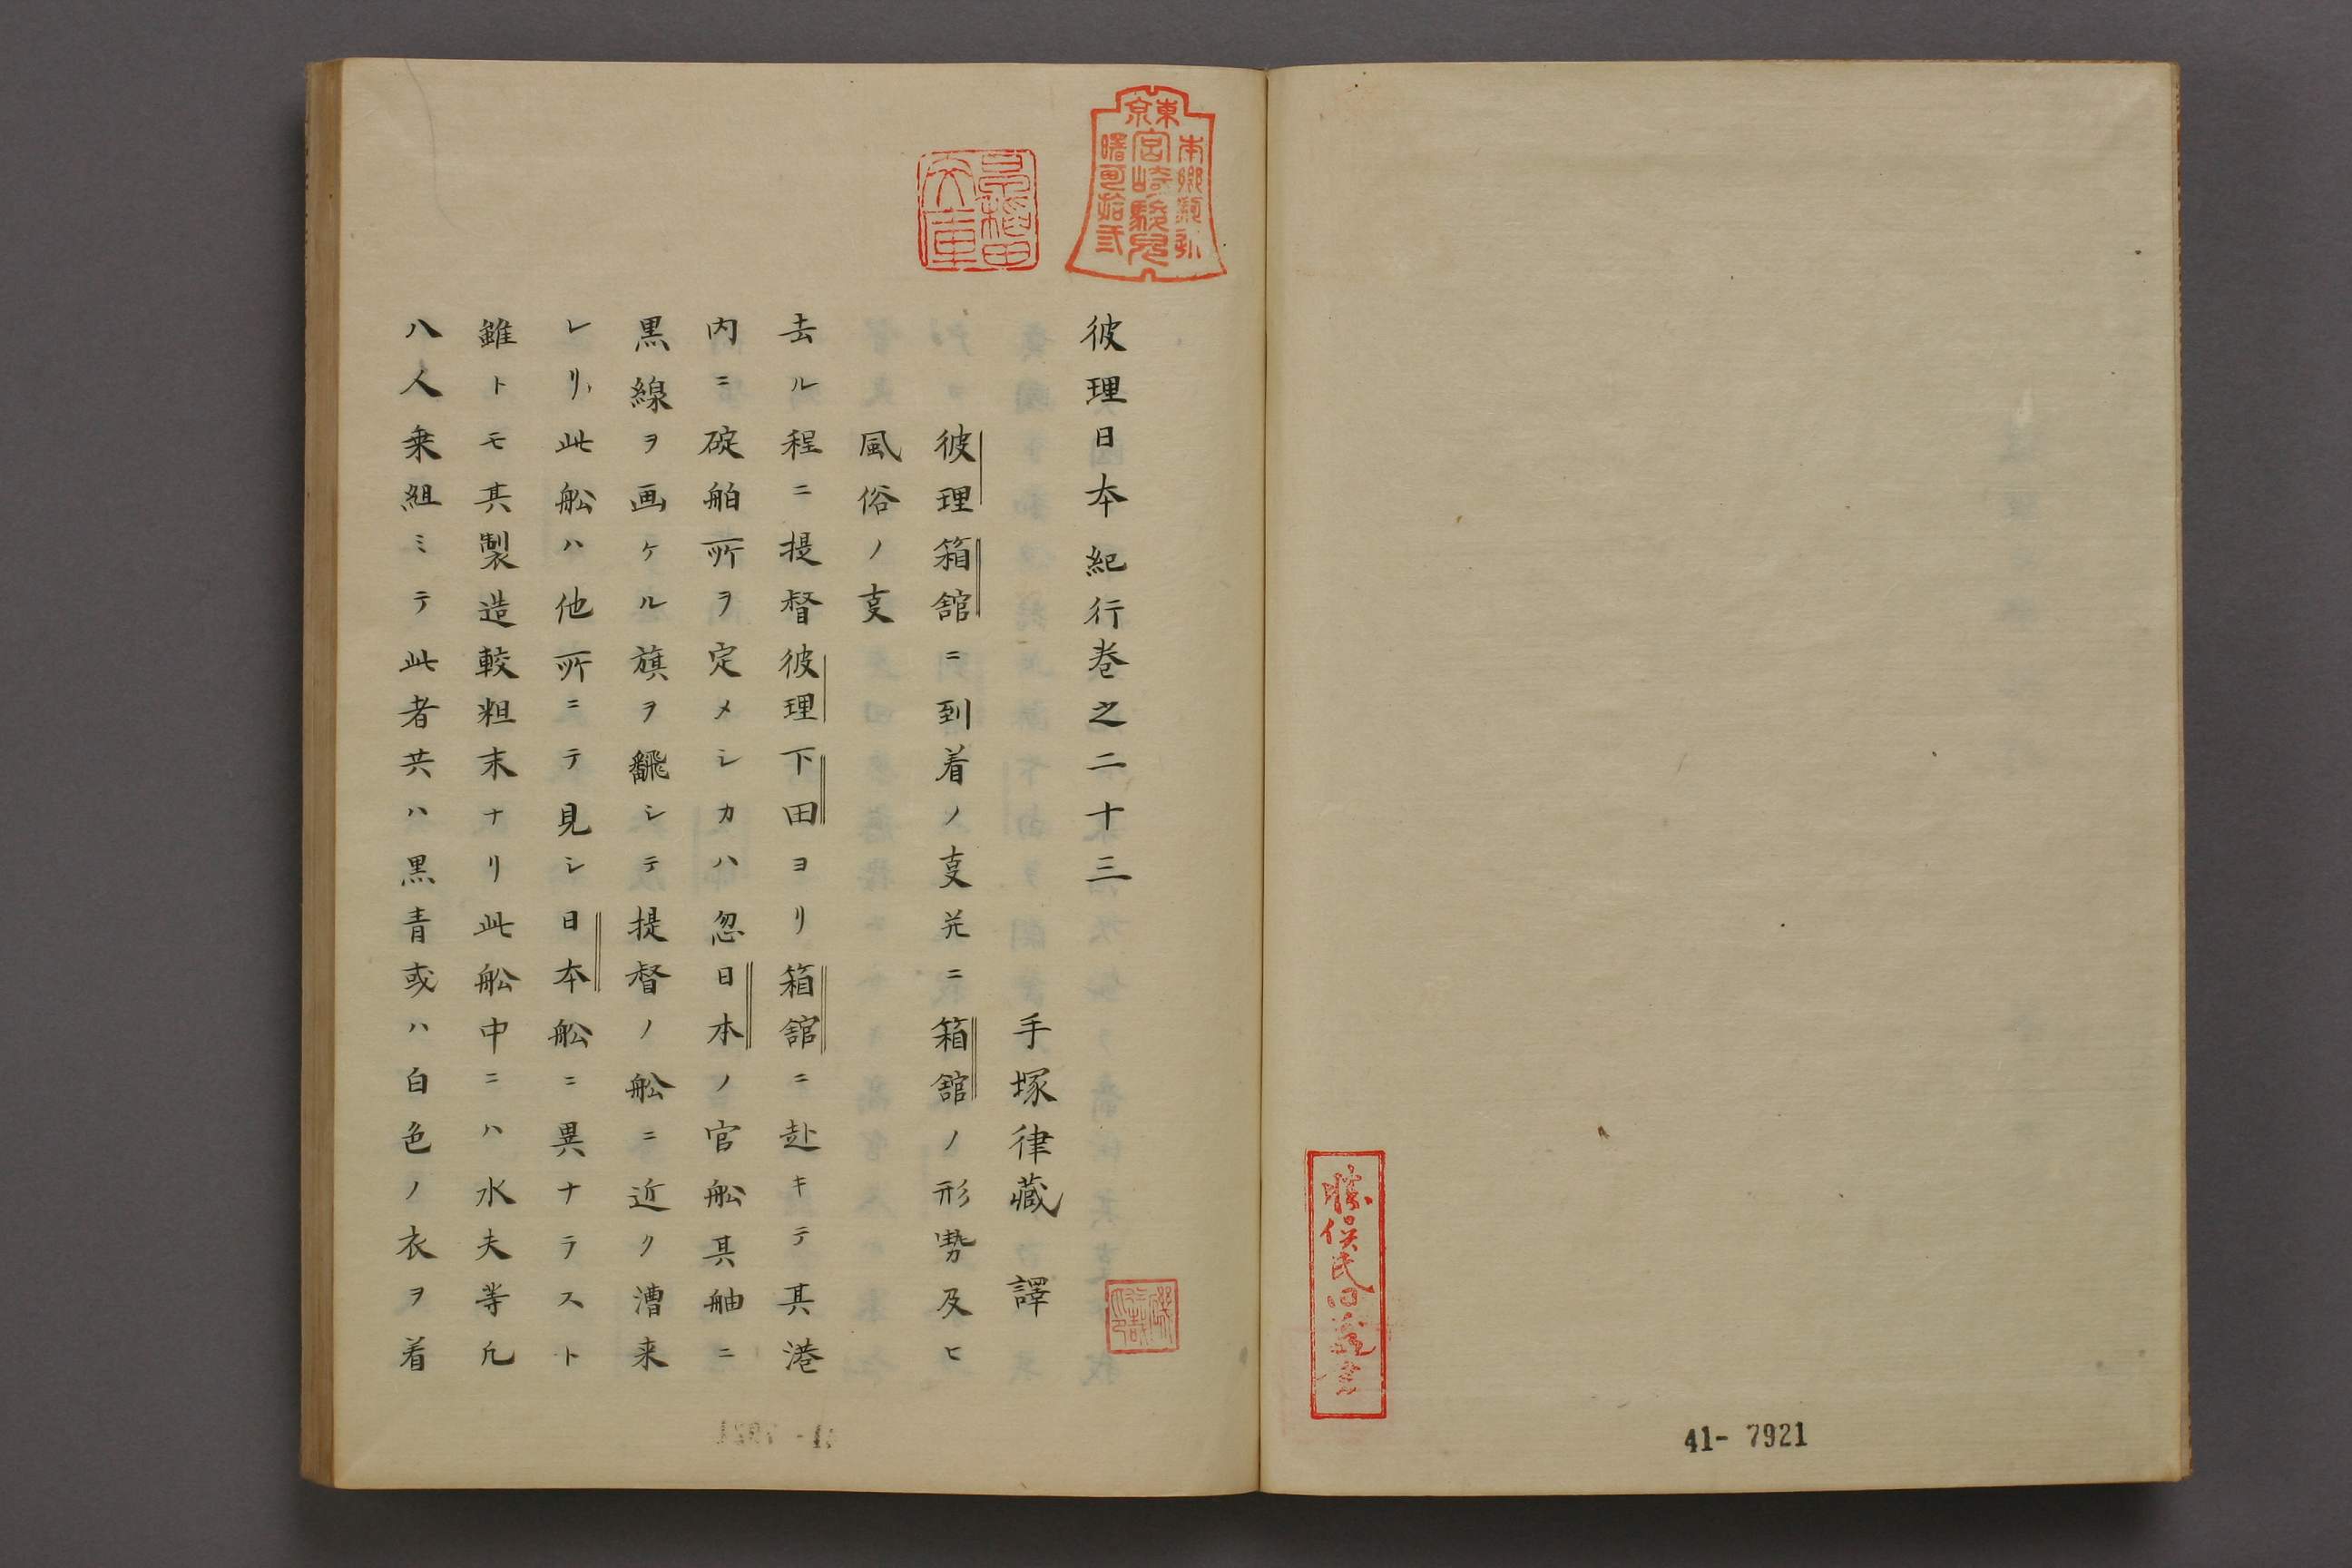 41- 7921
東京
本郷駒込
宮崎駿兒
曙町拾弐
彼理日本紀行巻之二十三
手塚律蔵 譯
彼理箱舘ニ到着ノ叓并ニ箱舘ノ形勢及ヒ
風俗ノ叓
去ル程ニ提督彼理下田ヨリ箱舘ニ赴キテ其港
内ニ碇舶所ヲ定メシカハ忽日本ノ官舩其舳ニ
黒線ヲ画ケル旗ヲ飜シテ提督ノ舩ニ近ク漕来
レリ此舩ハ他所ニテ見シ日本舩ニ異ナラスト
雖トモ其製造較粗末ナリ此舩中ニハ水夫等凢
八人乗組ミテ此者共ハ黒青或ハ白色ノ衣ヲ着